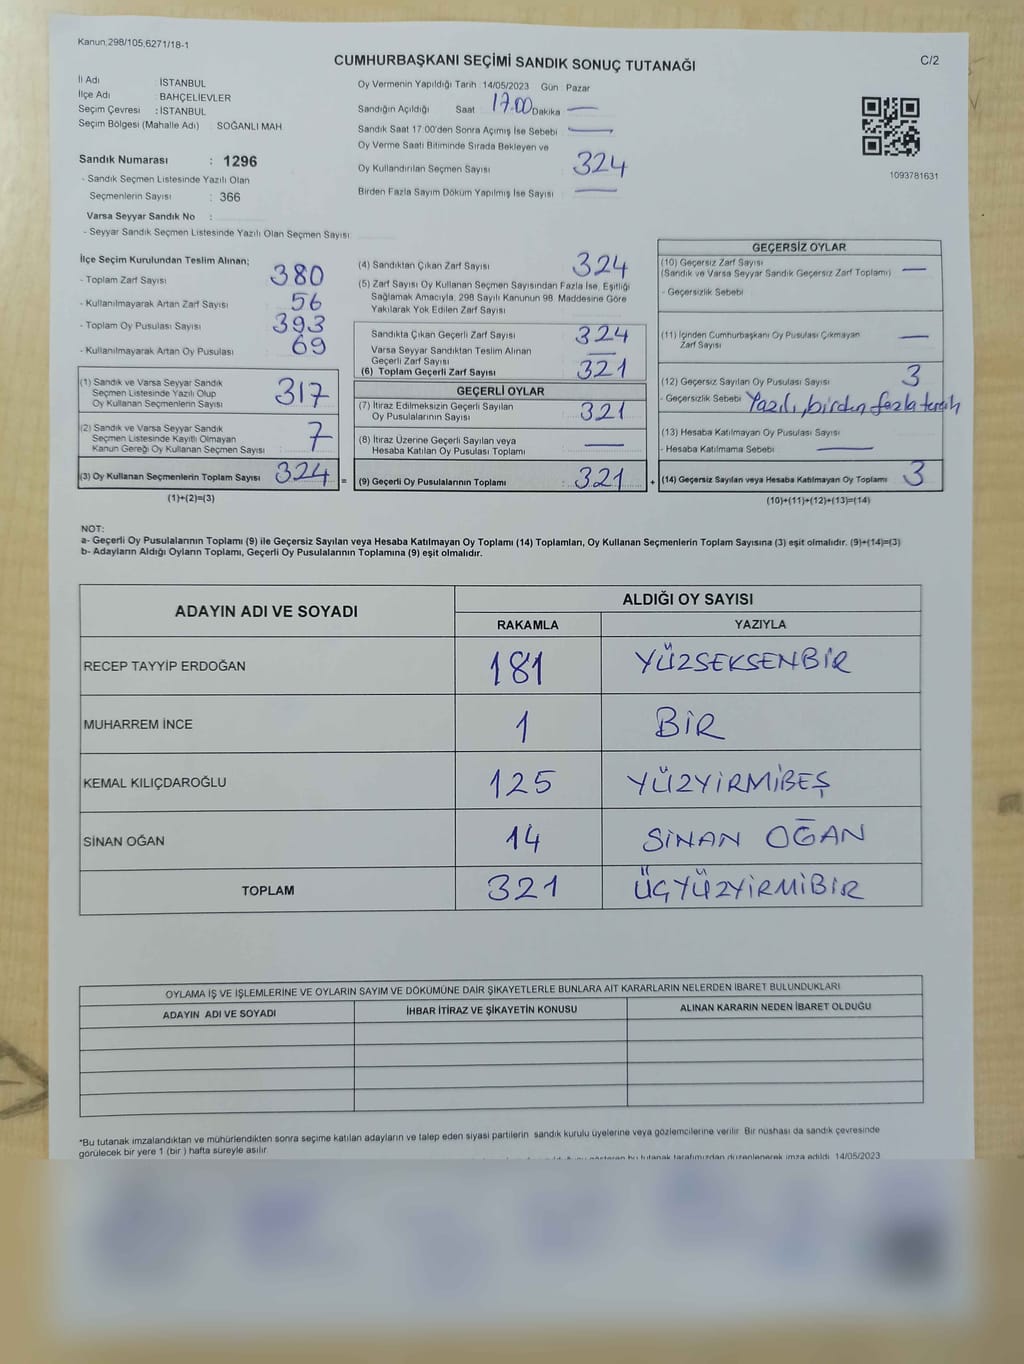 Kanun,298/105,6271/18-1
CUMHURBAŞKANI SEÇİMİ SANDIK SONUÇ TUTANAĞI
C/2
İl Adı İSTANBUL
İlçe Adı BAHÇELİEVLER
Seçim Çevresi : İSTANBUL
Seçim Bölgesi (Mahalle Adı) : SOĞANLI MAH
Sandık Numarası : 1296
- Sandık Seçmen Listesinde Yazılı Olan
Seçmenlerin Sayısı : 366
Varsa Seyyar Sandık No :
- Seyyar Sandık Seçmen Listesinde Yazılı Olan Seçmen Sayısı:
Oy Vermenin Yapıldığı Tarih : 14/05/2023 Gün : Pazar
Sandığın Açıldığı Saat 17.00 Dakika —
Sandık Saat 17:00'den Sonra Açımış İse Sebebi —
Oy Verme Saati Bitiminde Sırada Bekleyen ve
Oy Kullandırılan Seçmen Sayısı : 324
Birden Fazla Sayım Döküm Yapılmış İse Sayısı —
1093781631
İlçe Seçim Kurulundan Teslim Alınan;
- Toplam Zarf Sayısı 380
- Kullanılmayarak Artan Zarf Sayısı 56
- Toplam Oy Pusulası Sayısı 393
- Kullanılmayarak Artan Oy Pusulası 69
(1) Sandık ve Varsa Seyyar Sandık
Seçmen Listesinde Yazılı Olup
Oy Kullanan Seçmenlerin Sayısı 317
(2) Sandık ve Varsa Seyyar Sandık
Seçmen Listesinde Kayıtlı Olmayan
Kanun Gereği Oy Kullanan Seçmen Sayısı : 7
(3) Oy Kullanan Seçmenlerin Toplam Sayısı 324
(1)+(2)=(3)
=
(4) Sandıktan Çıkan Zarf Sayısı 324
(5) Zarf Sayısı Oy Kullanan Seçmen Sayısından Fazla İse, Eşitliği
Sağlamak Amacıyla, 298 Sayılı Kanunun 98. Maddesine Göre
Yakılarak Yok Edilen Zarf Sayısı
Sandıkta Çıkan Geçerli Zarf Sayısı 324
Varsa Seyyar Sandıktan Teslim Alınan
Geçerli Zarf Sayısı —
(6) Toplam Geçerli Zarf Sayısı 321
GEÇERLİ OYLAR
(7) İtiraz Edilmeksizin Geçerli Sayılan
Oy Pusulalarının Sayısı : 321
(8) İtiraz Üzerine Geçerli Sayılan veya
Hesaba Katılan Oy Pusulası Toplamı —
(9) Geçerli Oy Pusulalarının Toplamı : 321
+
GEÇERSİZ OYLAR
(10) Geçersiz Zarf Sayısı —
(Sandık ve Varsa Seyyar Sandık Geçersiz Zarf Toplamı)
- Geçersizlik Sebebi
(11) İçinden Cumhurbaşkanı Oy Pusulası Çıkmayan —
Zarf Sayısı
(12) Geçersiz Sayılan Oy Pusulası Sayısı 3
- Geçersizlik Sebebi Yazılı, birden fazla tercih
(13) Hesaba Katılmayan Oy Pusulası Sayısı
- Hesaba Katılmama Sebebi —
(14) Geçersiz Sayılan veya Hesaba Katılmayan Oy Toplamı 3
(10)+(11)+(12)+(13)=(14)
NOT:
a- Geçerli Oy Pusulalarının Toplamı (9) ile Geçersiz Sayılan veya Hesaba Katılmayan Oy Toplamı (14) Toplamları, Oy Kullanan Seçmenlerin Toplam Sayısına (3) eşit olmalıdır. (9)+(14)=(3)
b- Adayların Aldığı Oyların Toplamı, Geçerli Oy Pusulalarının Toplamına (9) eşit olmalıdır.
ADAYIN ADI VE SOYADI
ALDIĞI OY SAYISI
RAKAMLA YAZIYLA
RECEP TAYYİP ERDOĞAN 181 YÜZSEKSENBİR
MUHARREM İNCE 1 BİR
KEMAL KILIÇDAROĞLU 125 YÜZYİRMİBEŞ
SİNAN OĞAN 14 SİNAN OĞAN
TOPLAM 321 ÜÇYÜZYİRMİBİR
OYLAMA İŞ VE İŞLEMLERİNE VE OYLARIN SAYIM VE DÖKÜMÜNE DAİR ŞİKAYETLERLE BUNLARA AİT KARARLARIN NELERDEN İBARET BULUNDUKLARI
ADAYIN ADI VE SOYADI İHBAR İTİRAZ VE ŞİKAYETİN KONUSU ALINAN KARARIN NEDEN İBARET OLDUĞU
*Bu tutanak imzalandıktan ve mühürlendikten sonra seçime katılan adayların ve talep eden siyasi partilerin sandık kurulu üyelerine veya gözlemcilerine verilir. Bir nüshası da sandık çevresinde
görülecek bir yere 1 (bir ) hafta süreyle asılır.
bu tutanak tarafımızdan düzenlenerek imza edildi. 14/05/2023